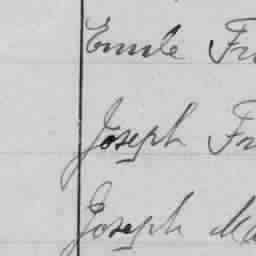 Emile Fr
Joseph Fr
Joseph Ma